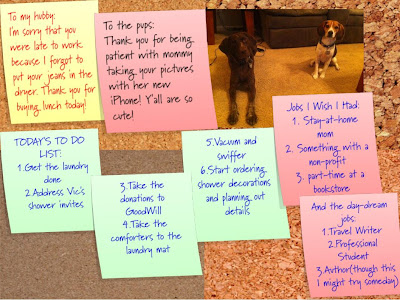 To my hubby:
I'm sorry that you
were late to work
because I forgot to
put your jeans in the
dryer. Thank you for
buying lunch today!
To the pups:
Thank you for being
patient with mommy
taking your pictures
with her new
iPhone! Y'all are so
cute!
TODAY'S TO DO
LIST:
1.Get the laundry
done
2.Address Vic's
shower invites
3.Take the
donations to
GoodWill
4.Take the
comforters to the
laundry mat
5.Vacuum and
swiffer
6.Start ordering
shower decorations
and planning out
details
Jobs I Wish I Had:
1. Stay-at-home
mom
2. Something with a
non-profit
3. part-time at a
bookstore
And the day-dream
jobs:
1.Travel Writer
2.Professional
Student
3.Author(though this
I might try someday)